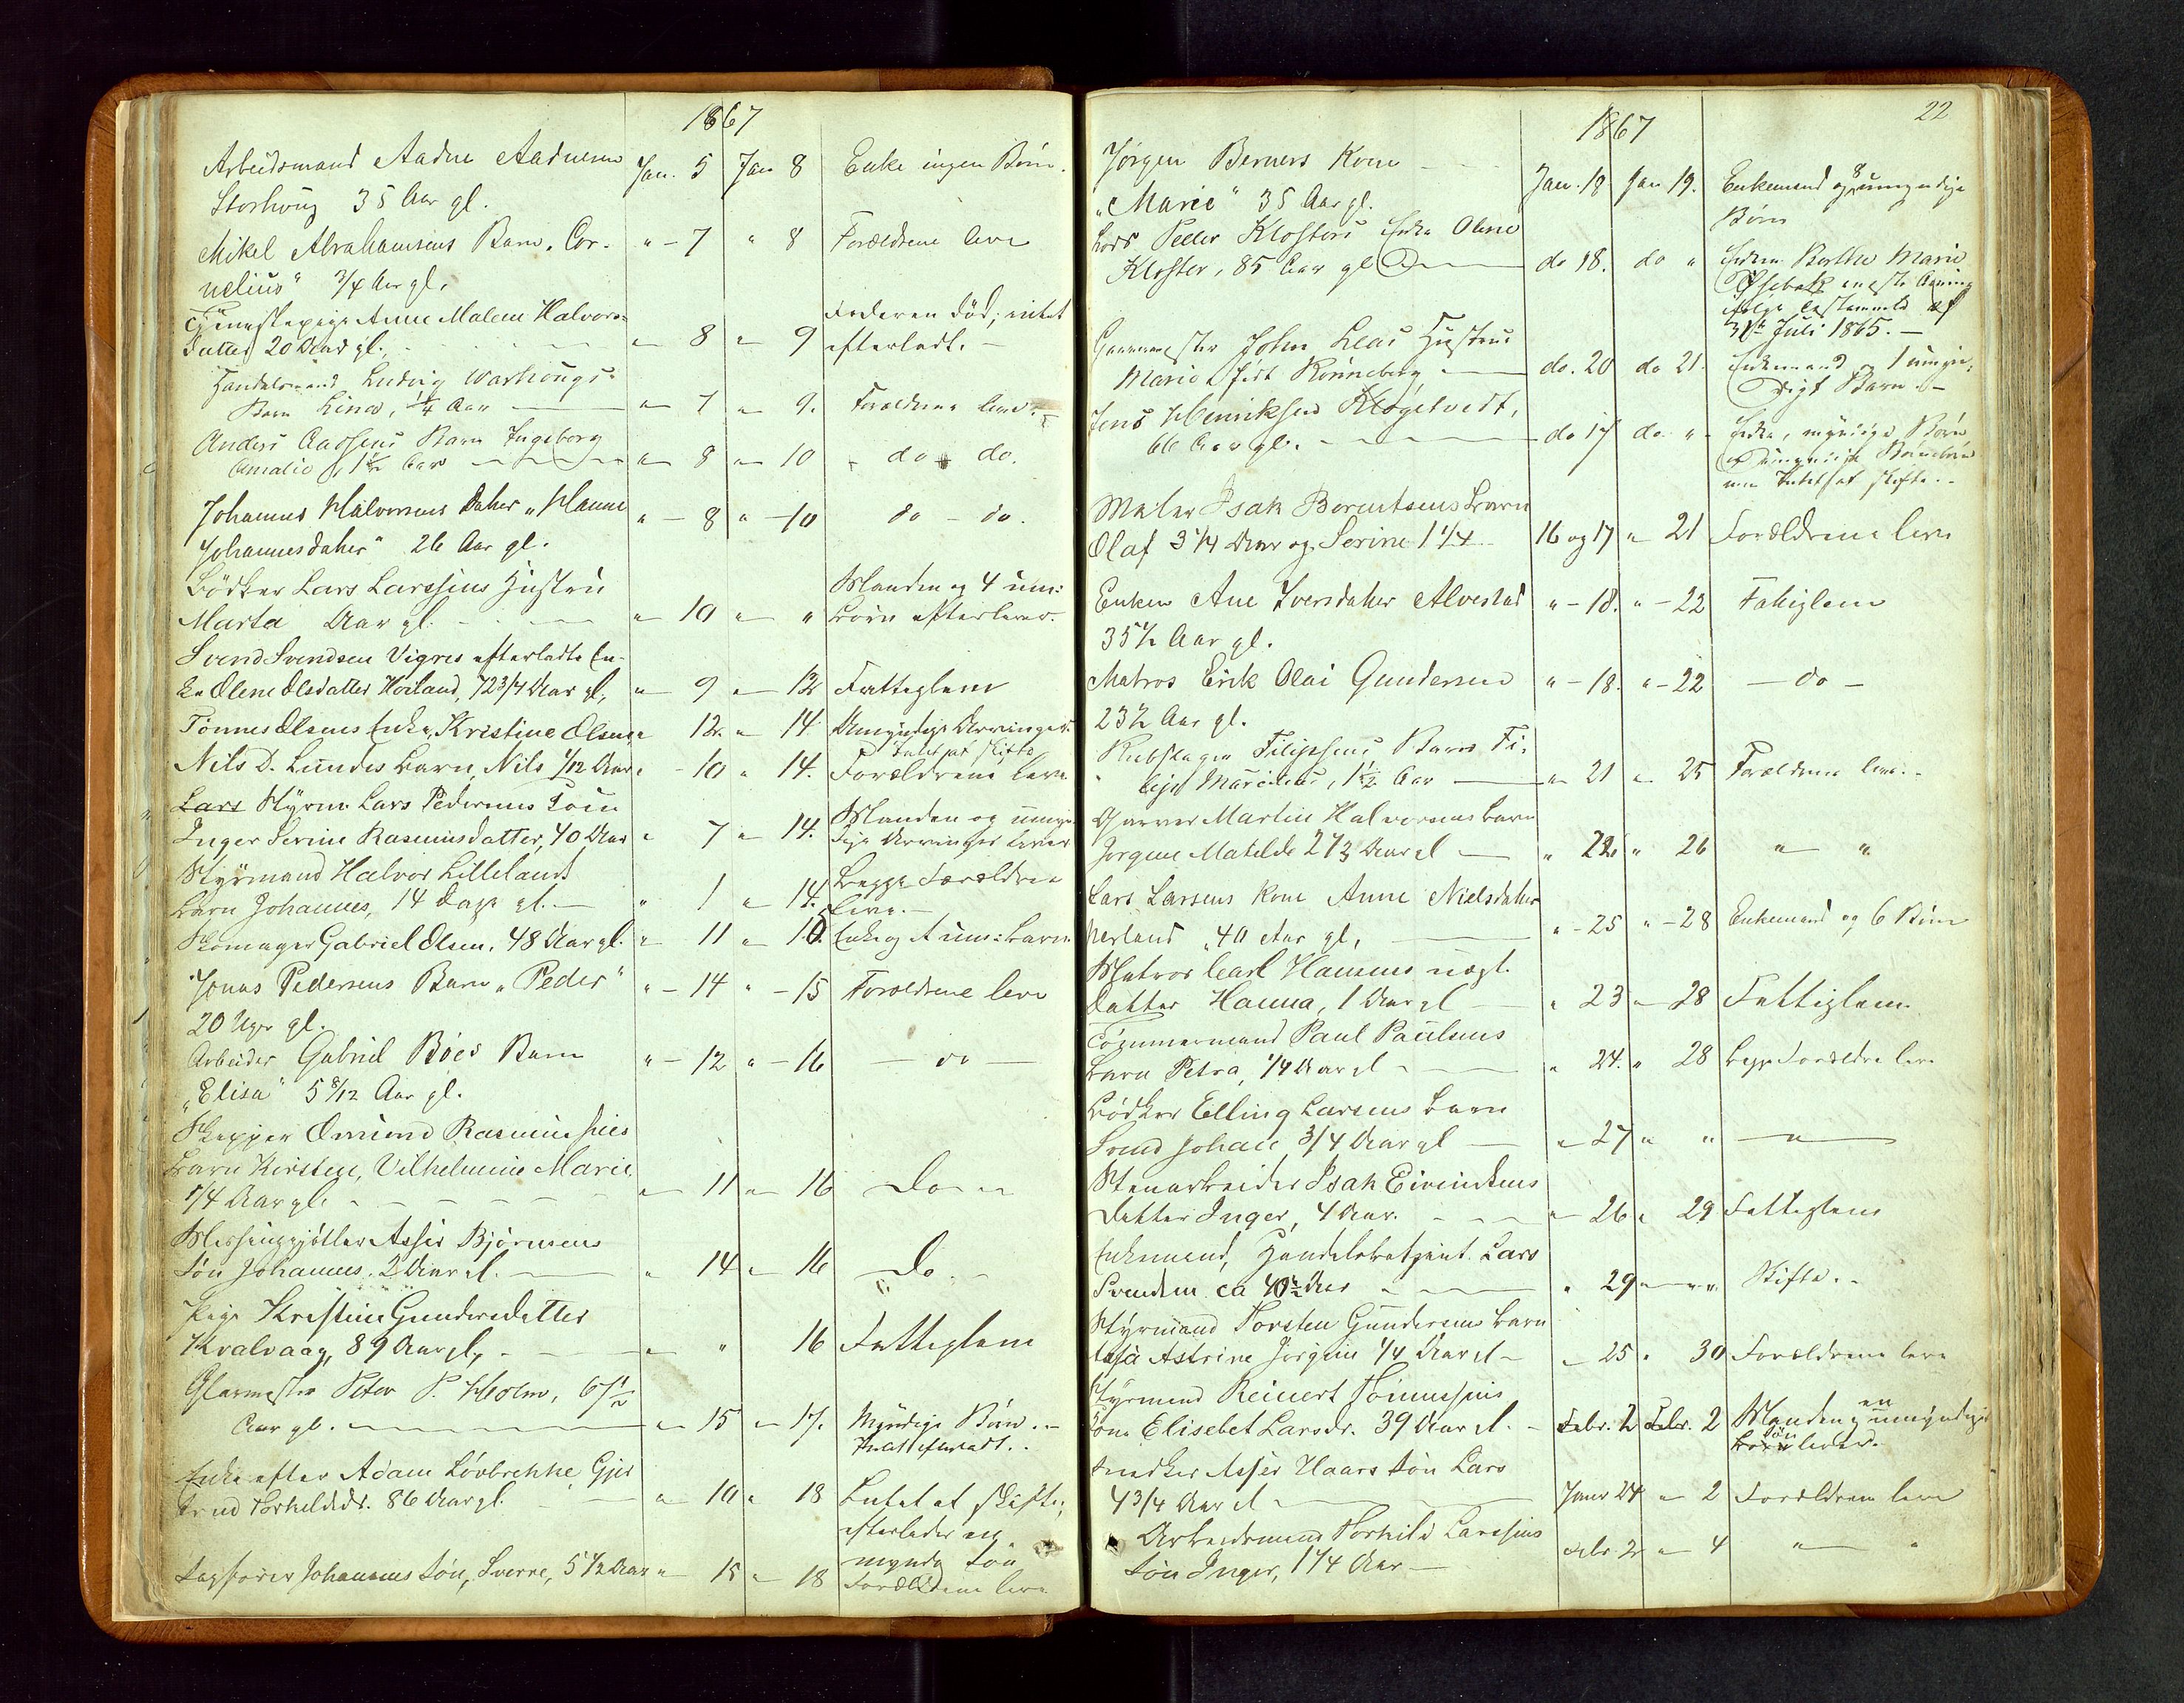 1867
Arbeidsmand Aadne Aadnesen Jan. 5 Jan 8 Enke ingen Børn.
Storhoug 35 Aar gl.
Mikel Abrahamsens Barn, Cor- " - 7 " 8 Forældrene leve
nelius" 3/4 Aar gl.
Tjenestepige Anne Malene Halvors- Faderen død; intet
datter 20 Aar gl. " 8 " 9 efterladt. -
Handelsmand Ludvig Warhougs
Barn Lina, 1/4 Aar " 7 " 9. Forældrene leve.
Anders Aasens Barn Ingeborg
Amalie, 1 1/2 Aar " 8 " 10 " do " do.
Johannes Halvorsens Datter "Hanne " - 8 " - 10 do - do.
Johannesdatter" 26 Aar gl.
Bødker Lars Larssens Hustru Manden og 4 um:
Marta Aar gl. " 10 " " Børn efterlever.
Svend Svendsen Vigres efterladte En-
ke Olene Olsdatter Høiland, 72 3/4 Aar gl, " 9 " 12 Fattiglem
Tønnes Olsens Enke, Kristine Olsen, " 12. " 14. Umyndige Arvinger.
Intet at skifte
Nils D. Lundes Barn, Nils 1/12 Aar " - 10 " 14. Forældrene leve
Lars Styrm. Lars Pedersens Kone Manden og umyn-
Inger Serine Rasmusdatter, 40 Aar " 7 " 14. dige Arvinger lever
Styrmand Halvor Lillelands Begge Forældre
Barn Johannes, 14 Dage gl. - " 1 " 14. leve. -
Skomager Gabriel Olsen, 48 Aar gl. " 11 " 10. Enke og um: Barn
Jonas Pedersens Barn "Peder" " - 14 " - 15 Forældrene leve
20 Uger gl.
Arbeider Gabriel Bøes Barn " - 12 " - 16 - do -
"Elisa" 5 8/12 Aar gl.
Skipper Omund Rasmussens
Barn Kirstine, Vilhelmine Marie
1/4 Aar gl. " 11 " 16 Do "
Messinggjøtler Asser Bjørnsens
Søn Johannes. 2 Aar gl. " 14 " 16 Do. -
Pige Kristine Gundersdatter
Kvalvaag, 89 Aar gl, " " 16 Fattiglem
Glarmester Peter P. Holm, 67 1/2
Aar gl. " 15 " 17. Myndige Børn. -
Intet efterladt. -
Enke efter Adam Løvbrekke, Gjer
trud Torkeldsdr. 86 Aar gl. " 10 " 18 Intet at skifte;
efterlader en
myndig Søn
Johannes Søn, Sverre, 5 1/2 Aar " 15 " 18 Forældrene leve
22
1867
Jørgen Berners Kone Jan. 18 Jan 19. Enkemand og 8 umyndige
"Marie" 35 Aar gl. Børn
Lods Peder Klosters Enke Oline
Kloster, 85 Aar gl. do 18. do " Enken Berthe Marie
eneste Arving
ifølge Testamente af
31te Juli 1865. -
John Leas Hustru
Marie født Rønneberg do. 20 do 21. Enkemand og 1 umyn-
digt Barn. -
Jens Henriksen
66 Aar gl. do 17 do. " Enke, myndige Børn
og umyndige Børnebørn
Intet at skifte. -
Maler Isak Berentsens Barn
Olaf 3 1/4 Aar og Serine 1 1/4 16 og 17 " 21 Forældrene leve
Enken Ane Iversdatter Alvestad " - 18. " - 22 Fattiglem
35 1/2 Aar gl.
Matros Erik Olai Gundersen " - 18. " - 22 - do -
23 1/2 Aar gl.
Rebslager Filipsens Barn Fi-
lip Marcelius, 1 1/2 Aar " 21 " 25 Forældrene leve. -
Garver Martin Halvorsens Barn
Jorgine Matilde 2 1/3 Aar gl " 22 " 26 " "
Lars Larsens Kone Anne Nielsdatter
Herland, 40 Aar gl, " - 25 " - 28 Enkemand og 6 Børn
Matros Carl Hansens uægt.
Datter Hanna, 1 Aar gl " 23 " 28 Fattiglem
Tømmermand Paul Paulsens
Barn Petra, 1/4 Aar gl " 24. " 28 Begge Forældre leve
Bødker Elling Larsens Barn
Svend Johan 3/4 Aar gl " 27 " " "
Stenarbeider Isak Eivindsens
Datter Inger, 4 Aar. " 26 " 29 Fattiglem
Enkemand, Handelsbetjent Lars
Svendsen ca 40 1/2 Aar " 29 " " " Skifte. -
Styrmand Torsten Gundersens Barn
Astrine Jorgine 1/4 Aar gl " 25 " 30 Forældrene leve
Styrmand Reinert Tønnessens
Kone Elisebet Larsdr. 39 Aar gl. Febr. 2 Febr. 2 Manden og en umyndig
Søn lever.
Snedker Asser Haars Søn Lars
4 3/4 Aar gl Janr 24 " 2 Forældrene leve
Arbeidsmand Torkild Larssens
Søn Inger, 1 1/4 Aar Febr. 2 " 4 " "